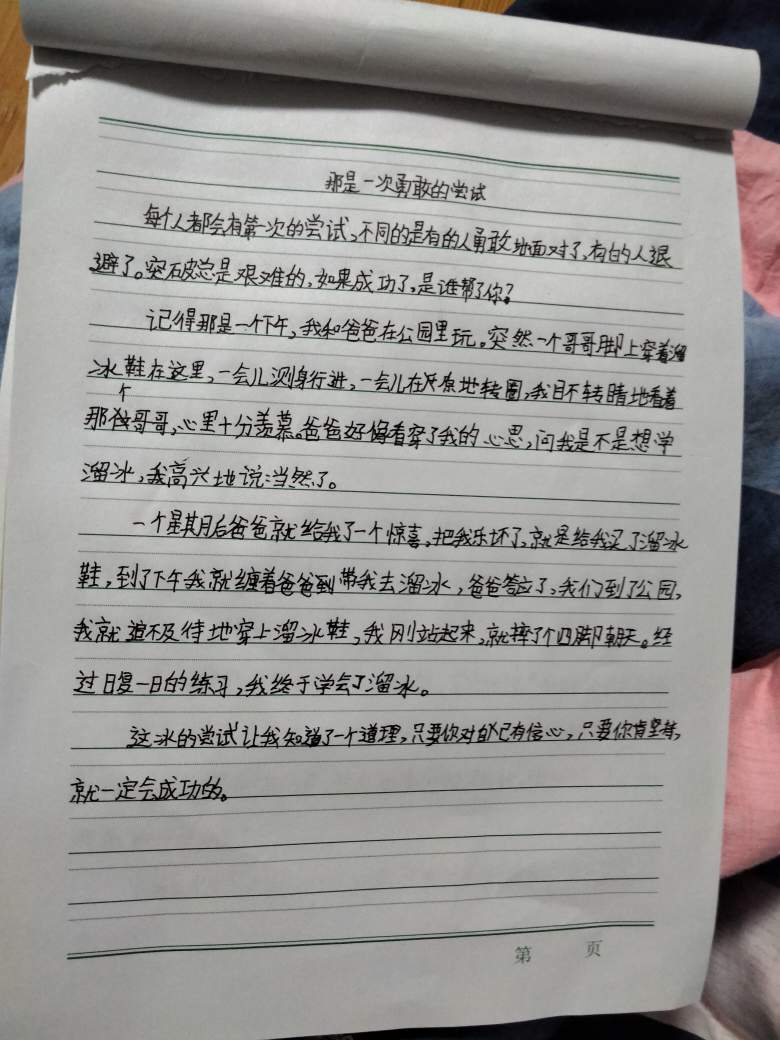 那是一次勇敢的尝试
每个人都会有第一次的尝试,不同的是有的人勇敢地面对了,有的人退
避了。突破总是艰难的,如果成功了,是谁帮了你?
记得那是一个下午,我和爸爸在公园里玩。突然一个哥哥脚上穿着溜
冰鞋在这里,一会儿测身行进,一会儿在原地转圈,我目不转睛地看着
那个哥哥,心里十分羡慕。爸爸好像看穿了我的心思,问我是不是想学
溜冰,我高兴地说:当然了。
一个星期后爸爸就给我了一个惊喜,把我乐坏了,就是给我买了溜冰
鞋,到了下午我就缠着爸爸到带我去溜冰,爸爸答应了,我们到了公园,
我就迫不及待地穿上溜冰鞋,我刚站起来,就摔了个四脚朝天。经
过日复一日的练习,我终于学会了溜冰。
这冰的尝试让我知道了一个道理,只要你对自己有信心,只要你肯坚持,
就一定会成功的。
第 页